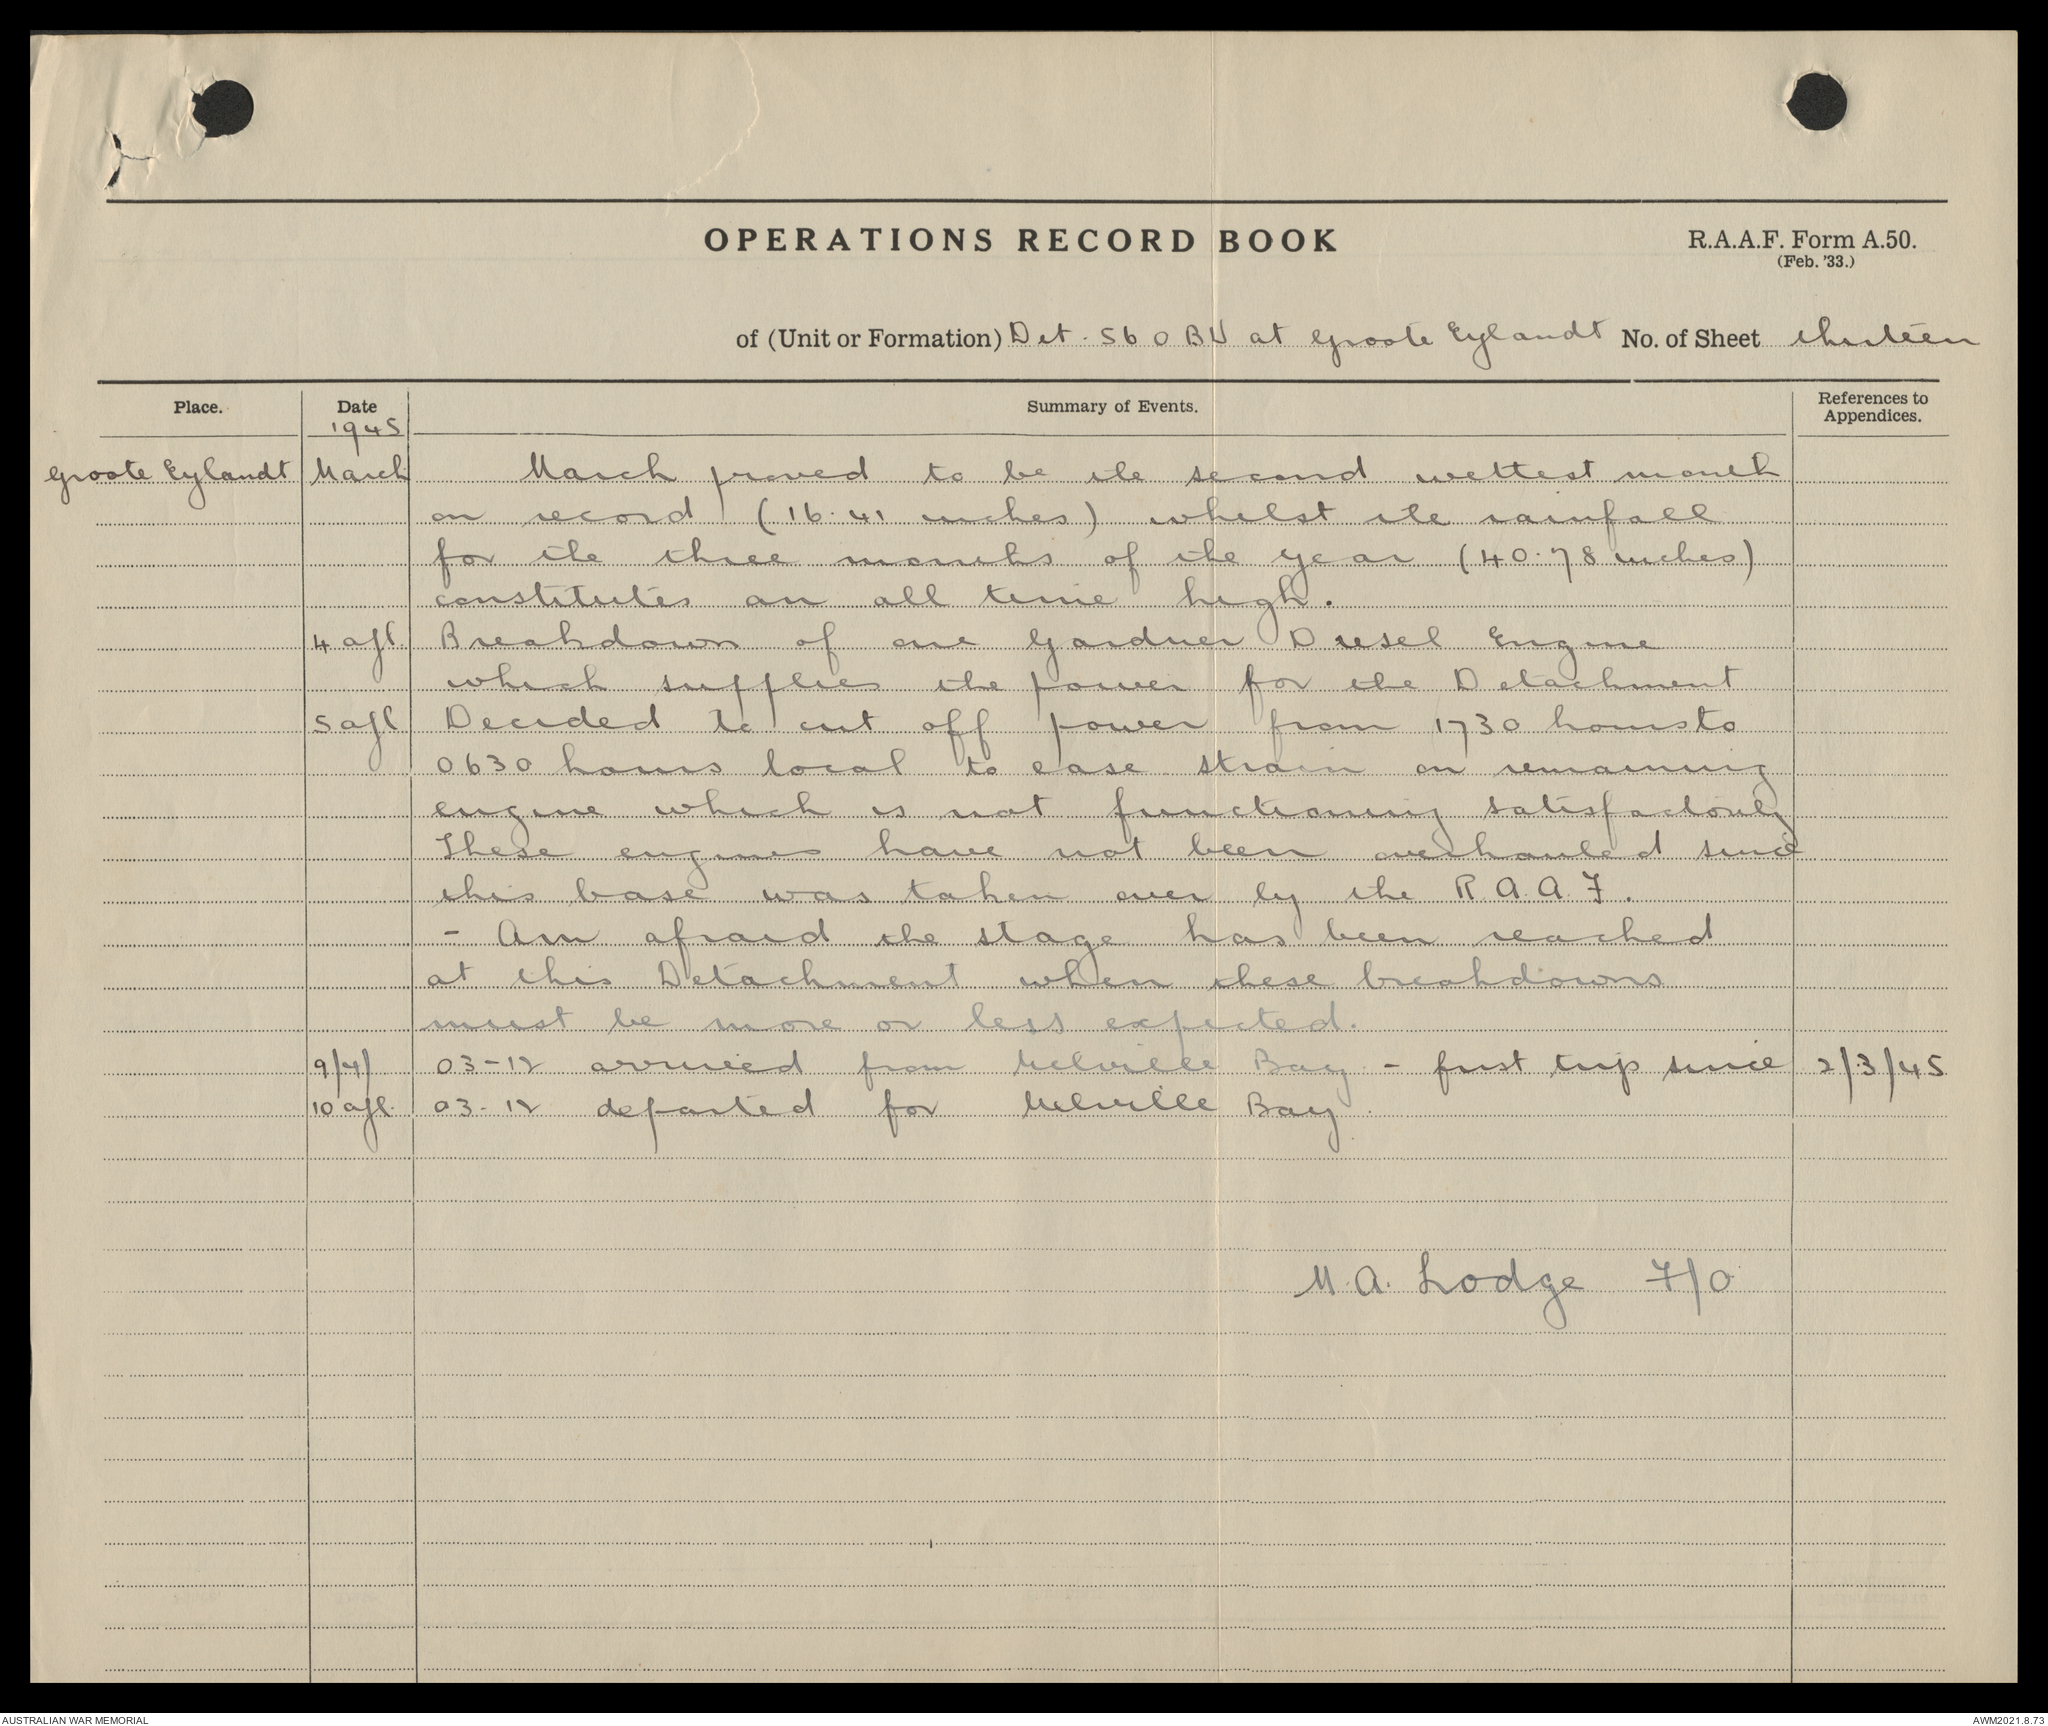 OPERATIONS RECORD BOOK
R.A.A.F. Form A.50.
(Feb. '33.)
of (Unit or Formation) Det. 56 OBU at Groote Eylandt No. of Sheet thirteen
Place. Date Summary of Events. References to Appendices.
1945
Groote Eylandt March March proved to be the second wettest month
on record (16.41 inches) whilst the rainfall
for the three months of the year (40.78 inches)
constitutes an all time high.
4 apl. Breakdown of one Gardner Diesel Engine
which supplies the power for the Detachment
5 apl Decided to cut off power from 1730 hours to
0630 hours local to ease strain on remaining
engine which is not functioning satisfactorily
These engines have not been overhauled since
this base was taken over by the R.A.A.F.
- Am afraid the stage has been reached
at this Detachment when these breakdowns
must be more or less expected.
9/4/ 03-12 arrived from Melville Bay - first trip since 2/3/45
10 apl. 03-12 departed for Melville Bay.
M.A. Lodge F/O
AUSTRALIAN WAR MEMORIAL
AWM2021.8.73